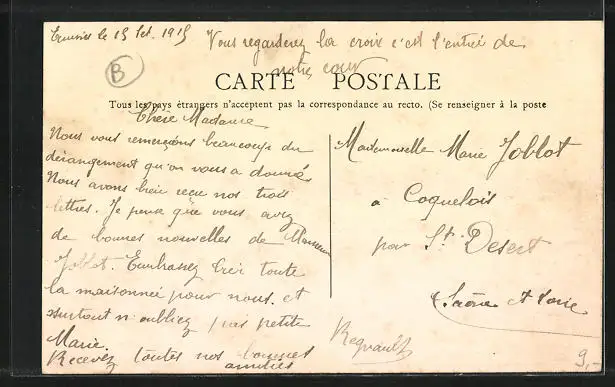 le 15 Oct. 1915
Vous regarderez la croix c'est l'entrée de
notre cour
B
CARTE POSTALE
Tous les pays étrangers n'acceptent pas la correspondance au recto. (Se renseigner à la poste
Chère Madame
Nous vous remercions beaucoup du
dérangement qu'on vous a donné
Nous avons bien reçu nos trois
lettres. Je pense que vous avez
de bonnes nouvelles de Monsieur
Joblot. Embrassez bien toute
la maisonnée pour nous. et
surtout n'oubliez pas petite
Marie.
Recevez toutes nos bonnes
amitiés
Regnault
Mademoiselle Marie Joblot
à Coquelois
par St Desert
Saône et Loire
9,-